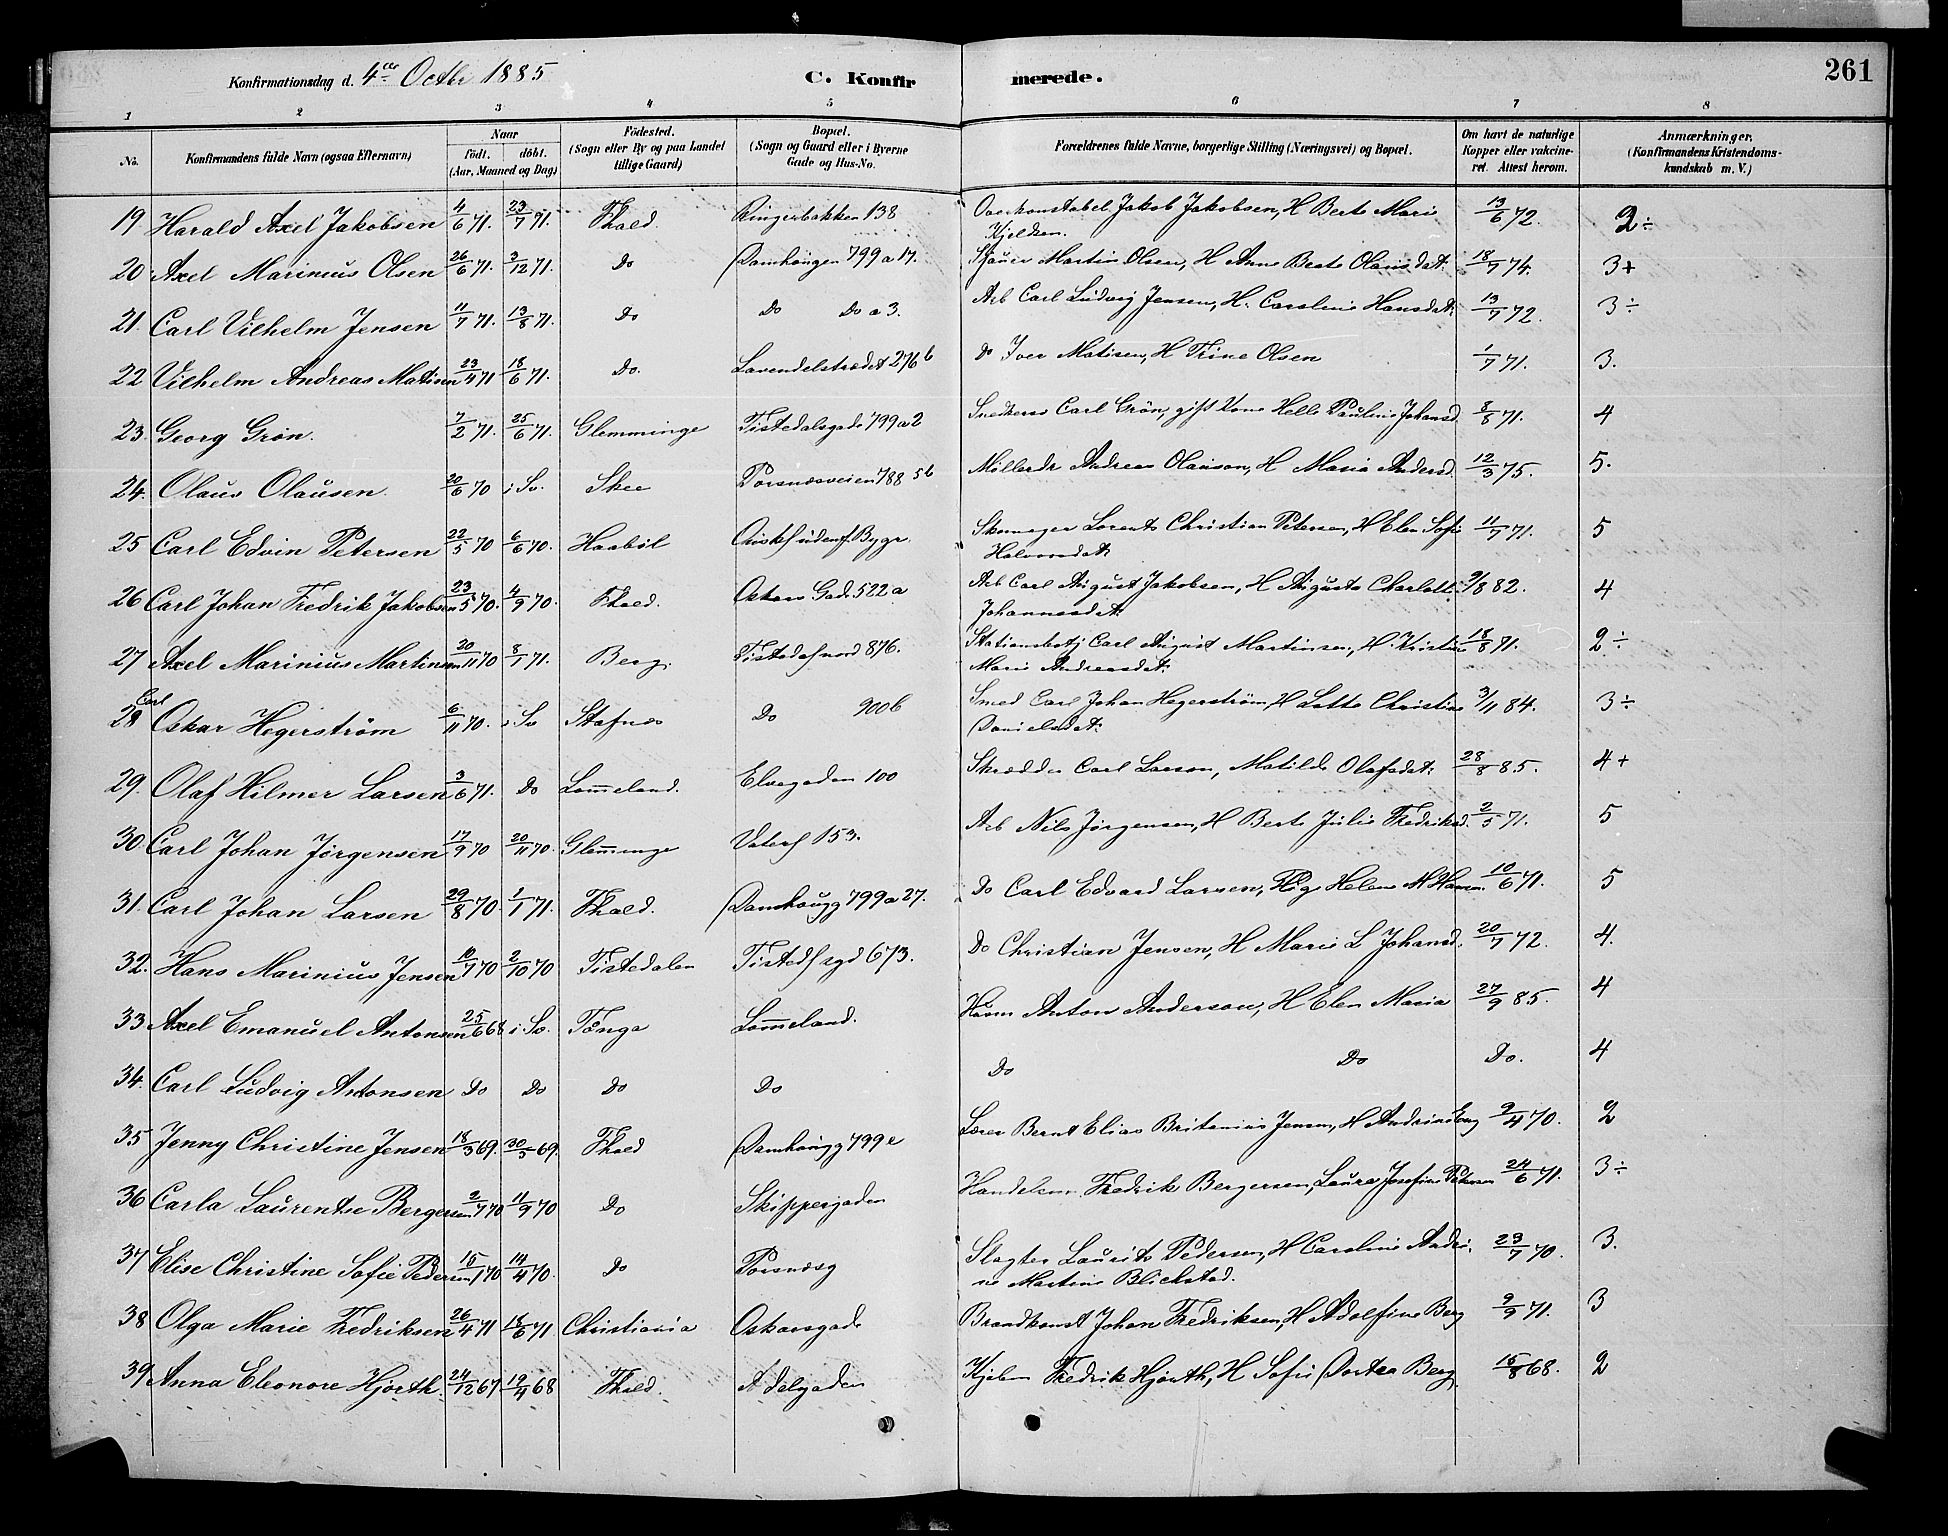 Konfirmationsdag d. 4de Octbr 1885 C. Konfirmerede. 261
1 2 3 4 5 6 7 8
No. Konfirmandens fulde Navn (ogsaa Efternavn) Naar födt. döbt. (Aar, Maaned og Dag) Födested. (Sogn eller By og paa Landet tillige Gaard) Bopæl. (Sogn og Gaard eller i Byerne Gade og Hus-No. Forældrenes fulde Navne, borgerlige Stilling (Næringsvei) og Bopæl. Om havt de naturlige Kopper eller vakcineret. Attest herom. Anmærkninger. (Konfirmandens Kristendomskundskab m. V.)
19 Harald Axel Jakobsen 4/6 71. 23/7 71. Fhald. Ringerbakken 138 Overkonstabel Jakob Jakobsen, H Berte Marie Kjeldsen. 13/6 72. 2÷
20. Axel Marinius Olsen 26/6 71. 3/12 71. Do Damhaugen 799 a 17. Sjauer Martin Olsen, H Anne Berte Olausdat. 18/7 74. 3+
21. Carl Vilhelm Jensen 11/7 71. 13/8 71. Do Do Do a 3. Arb Carl Ludvig Jensen, H. Caroline Hansdat. 13/7 72. 3÷
22 Vilhelm Andreas Matisen 23/4 71 18/6 71. Do. Lavendelstrædet 276 b Do Iver Matisen, H Trine Olsen 1/7 71. 3.
23. Georg Grön. 7/2 71. 25/6 71. Glemminge Tistedalsgade 799 a 2 Snedkersv Carl Grön, gift Kone Helle Pauline Johansd. 8/8 71. 4
24. Olaus Olausen 20/6 70 i Sv. Skee Torsnæsveien 788 5 b Möllerdr Andreas Olauson, H Maria Andersd. 12/3 75. 5.
25 Carl Edvin Petersen 22/5 70 6/6 70. Haaböl Skomager Lorents Christian Petersen, H Elen Sofie Halvorsdat. 11/7 71. 5
26 Carl Johan Fredrik Jakobsen 23/5 70. 4/9 70. Fhald. Oskars Gade 522 a Arb Carl August Jakobsen, H Augusta Charlotte Johannesdat. 9/8 82. 4
27 Axel Marinius Martinsen 20/11 70 8/1 71. Berg. Tistedaf nord 876. Stationsbetj Carl August Martinsen, H. Kristine Marie Andreasdat. 18/8 71. 2÷
28 Carl Oskar Hegerström 6/11 70. i Sv Stafnæs Do 900 b Smed Carl Johan Hegerström, H Lotta Christine Danielsdat. 3/11 84. 3÷
29. Olaf Hilmer Larsen 3/6 71. Do Lom̅eland. Elvegaden 100 Skrædder Carl Larson, Matilde Olafsdat. 28/8 85. 4+
30. Carl Johan Jörgensen 17/9 70 20/11 70. Glem̅inge Vaterl 153. Arb Nils Jörgensen, H Berte Julie Fredriksd. 2/5 71. 5
31. Carl Johan Larsen 29/8 70. 1/1 71. Fhald. Damhaugg 799 a 27. Do Carl Edvard Larsen, Pig Helene M Hansen 10/6 71. 5
32. Hans Marinius Jensen 10/7 70 2/10 70 Tistedalen Tistedlsgd 673. Do Christian Jensen, H Marie L Johansd. 20/7 72. 4.
33 Axel Emanuel Antonsen 25/6 68 i Sv. Tönga Lom̅eland. Husm Anton Anderson, H Elen Maria 27/9 85. 4
34. Carl Ludvig Antonsen Do Do Do Do Do Do Do. 4
35 Jenny Christine Jensen 18/3 69. 30/5 69. Fhald Damhaugg 799 e Lærer Bernt Elias Britanius Jensen, H Andrine Eng 9/4 70. 2
36 Carla Laurentse Bergersen 2/7 70 11/9 70 Do Skippergaden Handelsm. Fredrik Bergersen, Laura Josefine Petersen 24/6 71. 3÷
37 Elise Christine Sofie Pedersen 15/1 70 14/4 70. Do Torsnæsg Slagter Laurits Pedersen, H Caroline Andrine Martine Blichstad. 23/7 70. 3.
38 Olga Marie Fredriksen 26/4 71 18/6 71 Christiania Oskarsgade Brandkonst Johan Fredriksen, H Adolfine Berg 9/9 71. 3
39 Anna Eleonore Hjorth. 24/12 67. 19/4 68 Fhald. Adelgaden Kjöbm Fredrik Hjorth, H Sofie Dortea Berg. 15/8 68. 2